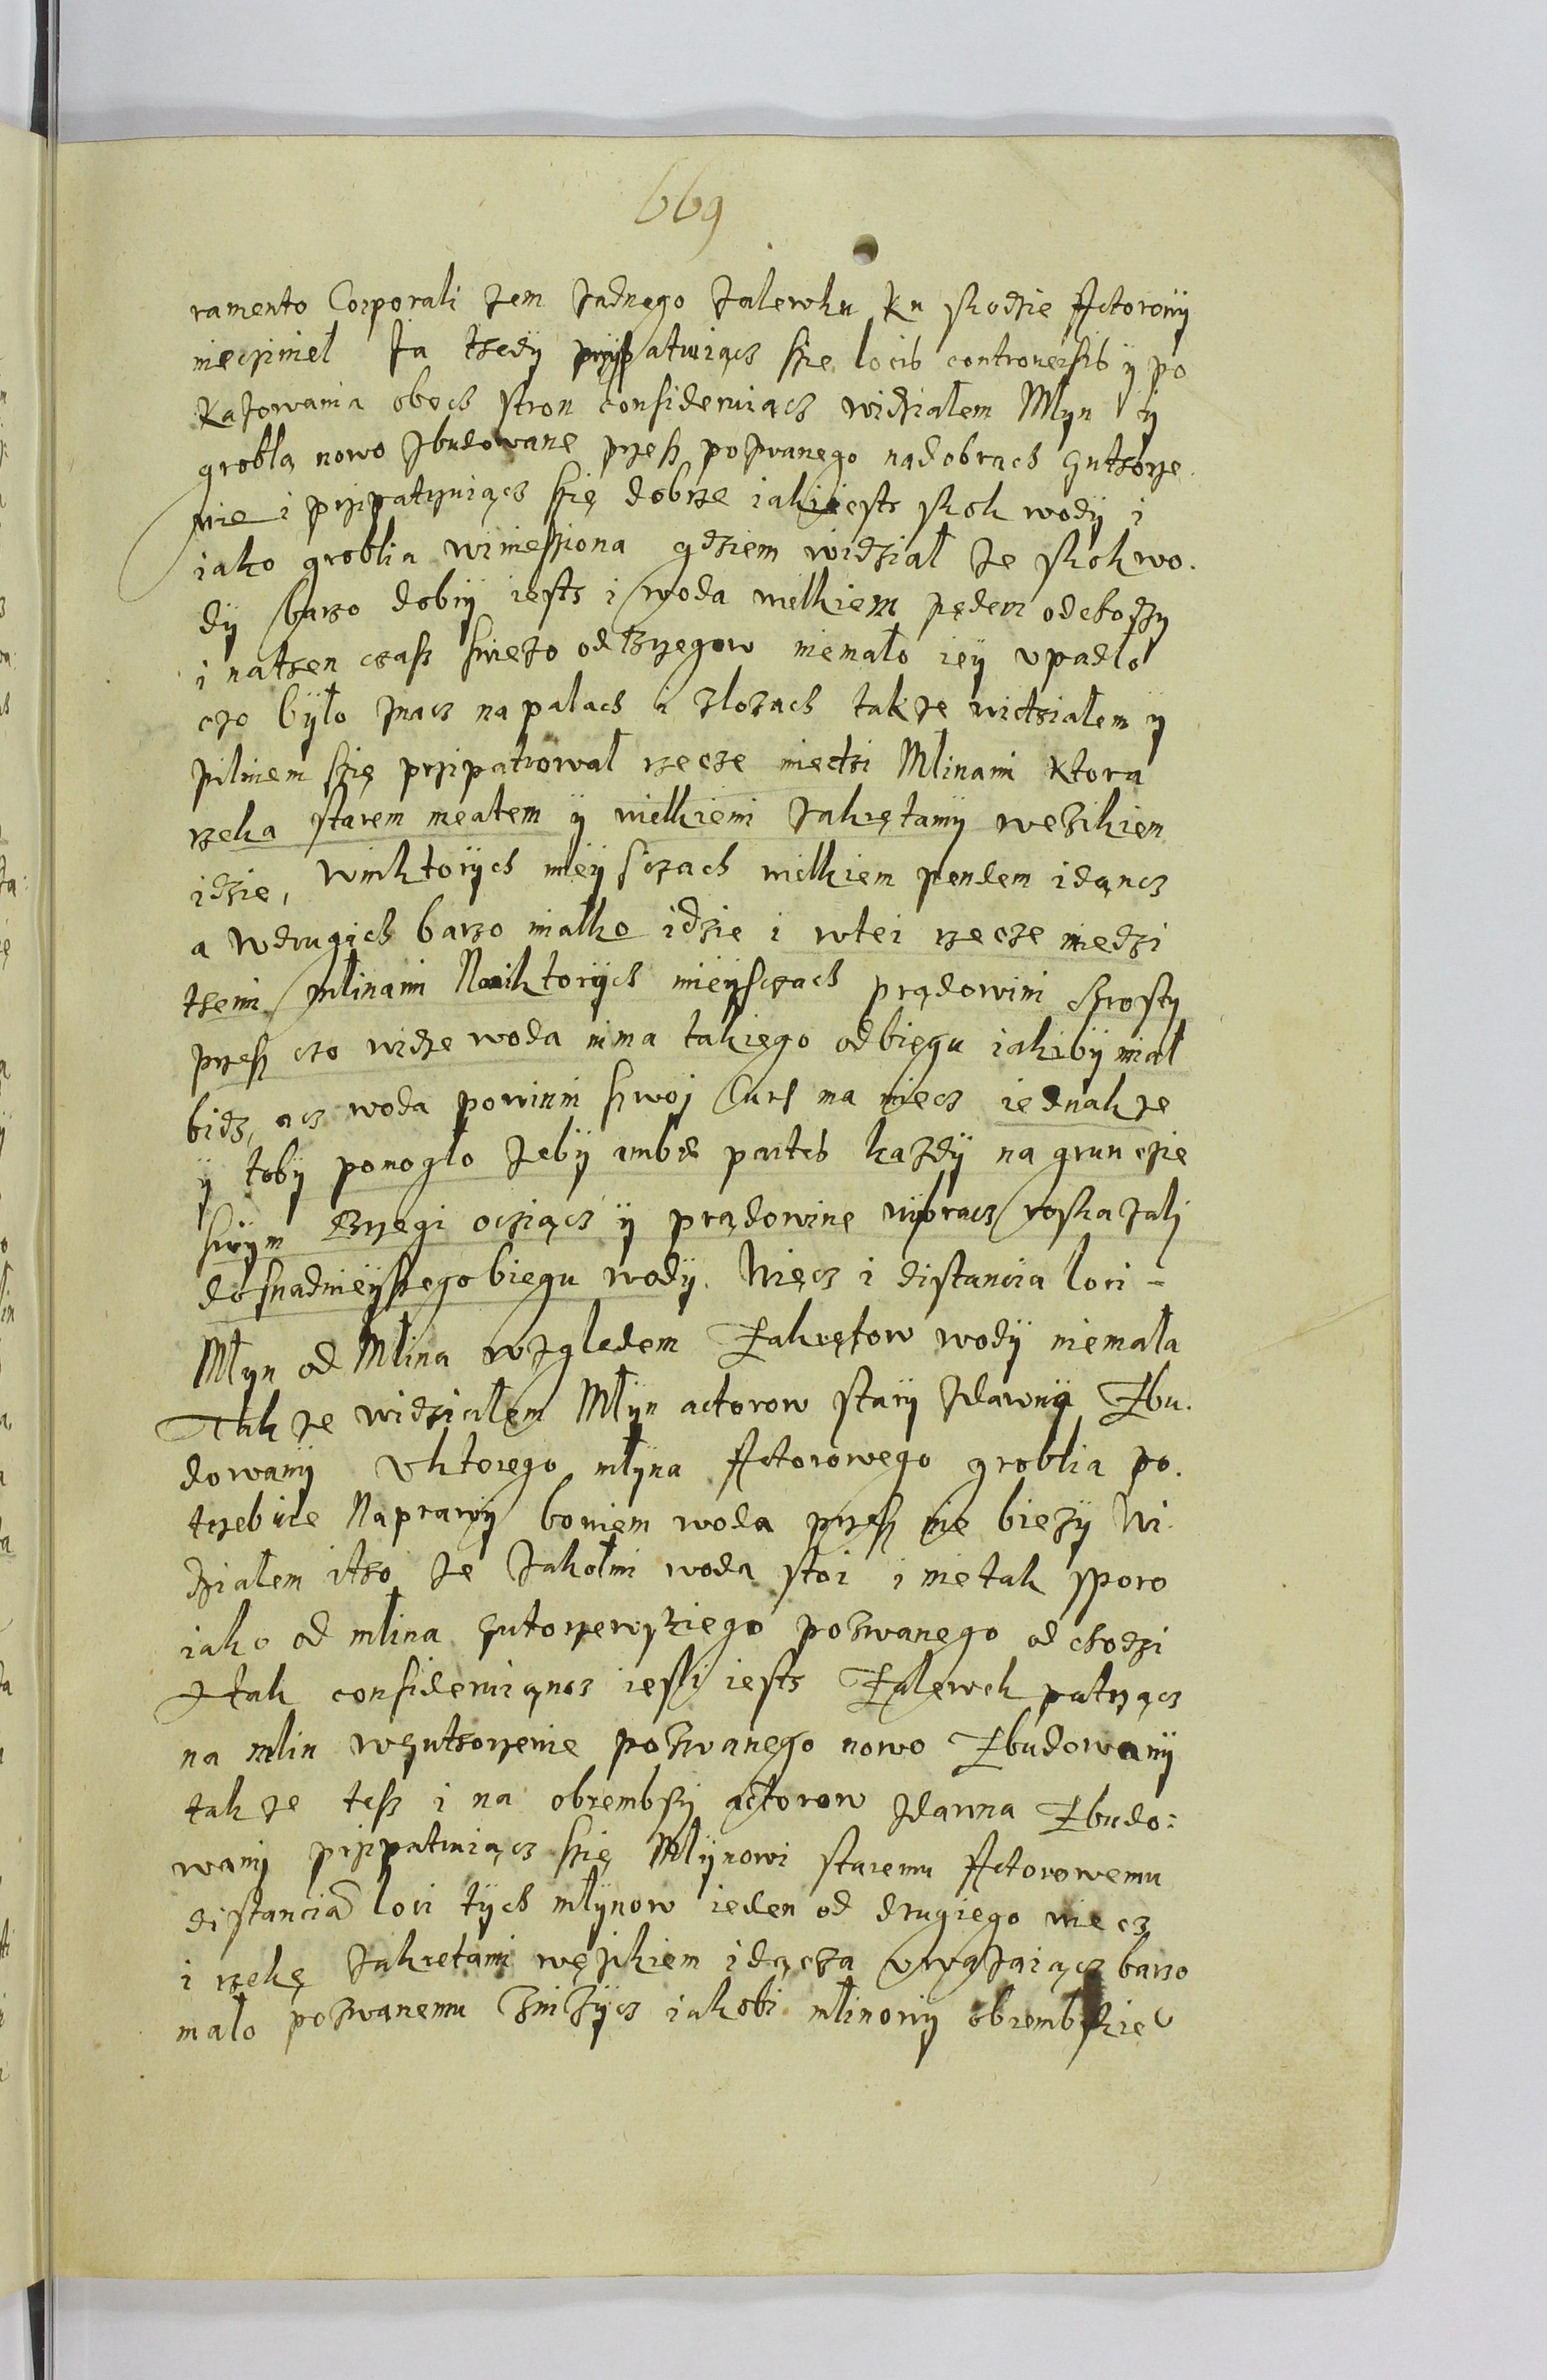 669
ramento Corporali zem zadnego zalewku ku skodzie Actorowÿ
nieczinieł Ja thedÿ przÿpatruiącz szie locis controuersis ÿ po
kazowania oboch stron consideruiącz widziałem Młyn ÿ
groblą nowo zbudowane przesz pozwanego nadobrach Guthorze.
nie i przipatruiącz szię dobrze iaki iesth skok wodÿ i
iako groblia winiesziona gdziem widział ze skok wo.
dÿ barzo dobrÿ iesth i woda wielkiem pędem odchodzy
i nathen czasz swiezo odbrzegow niemało ieÿ vpadło
czo bÿło znacz na palach i zlozach takze widziałem ÿ
pilniem szię przipatrował rzecze miedzi Młinami ktora
rzeka starem meatem ÿ wielkiemi zakrętamÿ weskiem
idzie, wniktorÿch mieÿsczach wielkiem pendem idącz
a wdrugich barzo miałko idzie i wtei rzecze miedzi
themi młinami Naniktorÿch mieÿsczach prądowini chrosty
przesz czo widze woda nima takiego odbiegu iakibÿ miał
bidz, acz woda powinni swoj Curs ma miecz iednakze
ÿ tobÿ pomogło zebÿ ambe partes kazdÿ na gruncie
swÿm brzegi ocziącz ÿ prądowine wÿbracz roskazali
dosnadnieÿszego biegu wodÿ. Więcz i distancia loci -
Młyn od Młina wzgledem Zakrętow wodÿ niemała
Takze widziałem Młÿn actorow starÿ zdawna Zbu.
dowanÿ vktorego młÿna Actorowego groblia po.
trzebuie Naprawÿ boniem woda przesz nie bieżÿ Wi.
działem itho ze zakołmi woda stoi i nie tak sporo
iako od młina Gutorzewskiego pozwanego od chodzi
Itak considerniącz iesli iesth Zalewek patrzącz
na młin wGuthorzenie pozwanego nowo Zbudowanÿ
takze tesz i na obrembskÿ actorow zdawna Zbudo:
wanÿ przipatruiącz szię Młÿnowi staremu Actorowemu
distancia loci tÿch młÿnow ieden od drugiego więcz
i rzekę zakretami węskiem idącza vwazaiącz barzo
mało pozwanemu zniżÿcz iakobi młinowÿ obrembskie⁰